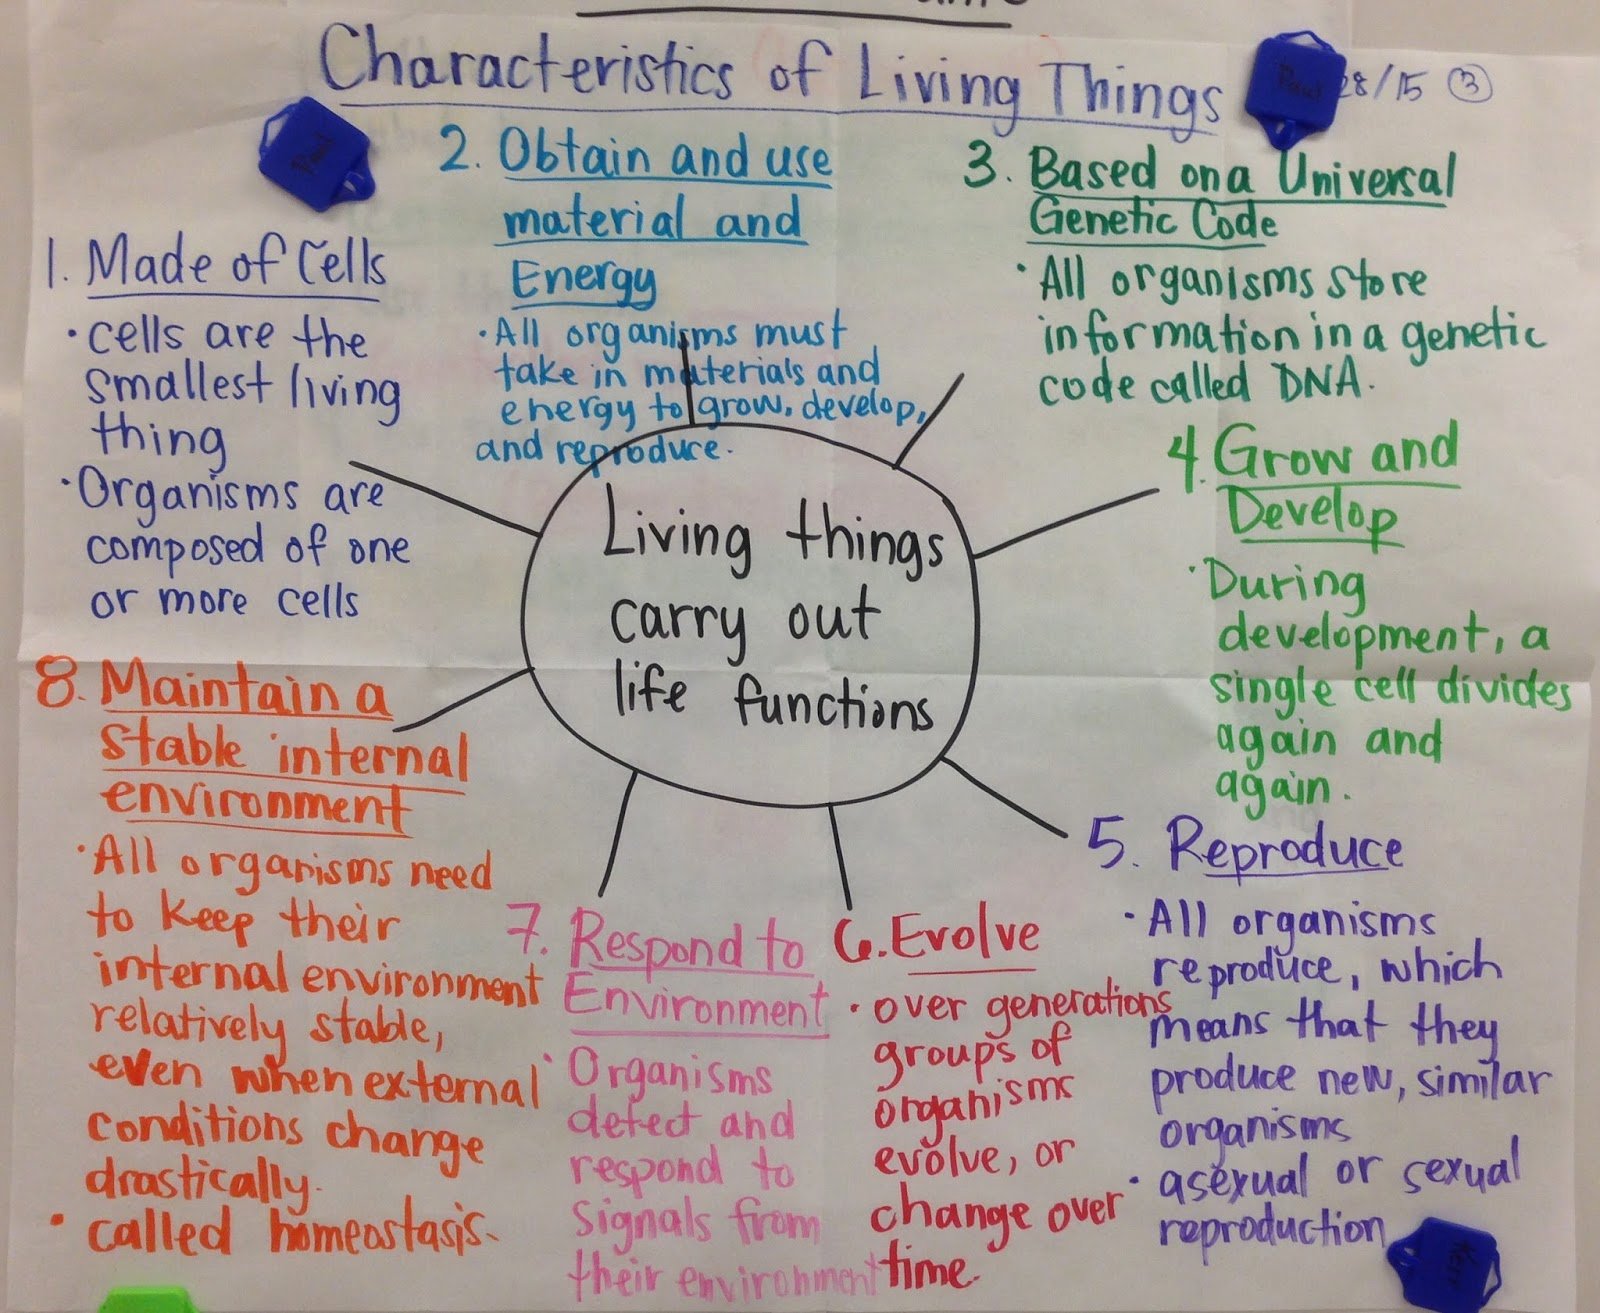 Characteristics of Living Things
28/15 3
1. Made of Cells
• cells are the
smallest living
thing
• Organisms are
composed of one
or more cells
2. Obtain and use
material and
Energy
• All organisms must
take in materials and
energy to grow, develop,
and reproduce.
3. Based on a Universal
Genetic Code
• All organisms store
information in a genetic
code called DNA.
4. Grow and
Develop
• During
development, a
single cell divides
again and
again.
5. Reproduce
• All organisms
reproduce, which
means that they
produce new, similar
organisms
• asexual or sexual
reproduction
6. Evolve
• over generations
groups of
organisms
evolve, or
change over
time.
7. Respond to
Environment
• Organisms
detect and
respond to
signals from
their environment
8. Maintain a
stable internal
environment
• All organisms need
to keep their
internal environment
relatively stable,
even when external
conditions change
drastically.
• called homeostasis.
Living things
carry out
life functions
Paul
Paul